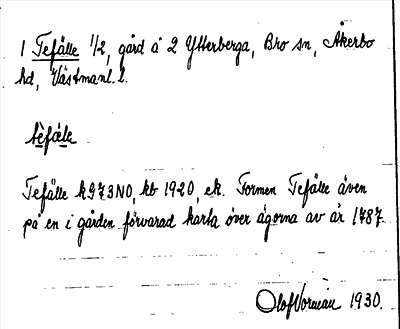 1 Tefälle 1/2, gård å 2 Ytterberga, Bro sn, Åkerbo
hd, Västmanl. l.
tèfäle
Tefälle k973NO, kb 1920, ek. Formen Tefälle även
på en i gården förvarad karta över ägorna av år 1787.
Olof Vorneän 1930.